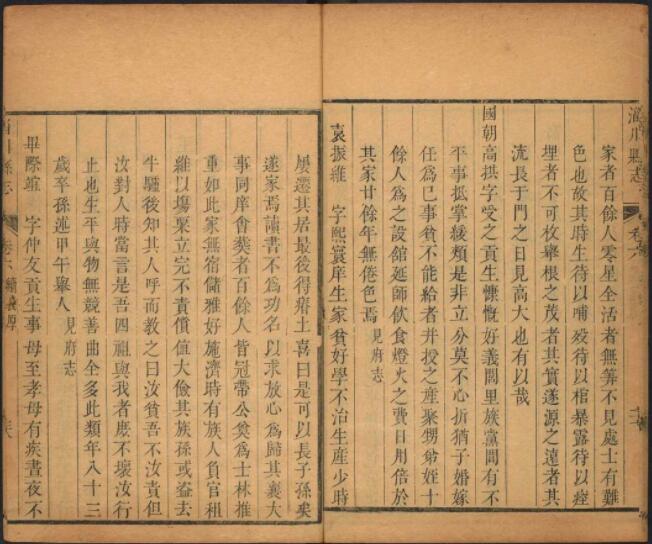 淄川縣志
卷六
家者百餘人零星全活者無筭不見處士有難
色也故其時生待以哺殁待以棺暴露待以瘞
埋者不可枚舉根之茂者其實遂源之遠者其
流長于門之日見高大也有以哉
國朝高拱字受之貢生慷慨好義閭里族黨間有不
平事抵掌緩頰是非立分莫不心折猶子婚嫁
任為已事貧不能給者并授之產聚甥弟姪十
餘人為之設館延師飲食燈火之費日用倍於
其家廿餘年無倦色焉 見府志
袁振雒 字熙寰庠生家貧好學不治生產少時
屢遷其居最後得瘠土喜曰是可以長子孫矣
遂家焉讀書不為功名以求放心為歸其襄大
事同庠會葬者百餘人皆冠帶公奠為士林推
重如此家無宿儲雅好施濟時有族人負官租
維以塲粟立完不責償值大儉其族孫或盜去
牛驢後知其人呼而教之曰汝貧吾不汝責但
汝對人時當言是吾四祖與我者庶不壞汝行
止也生平與物無競善曲全多此類年八十三
歲卒孫述甲午舉人 見府志
畢際竩 字仲友貢生事母至孝母有疾晝夜不
淄川縣志
卷六 續義厚